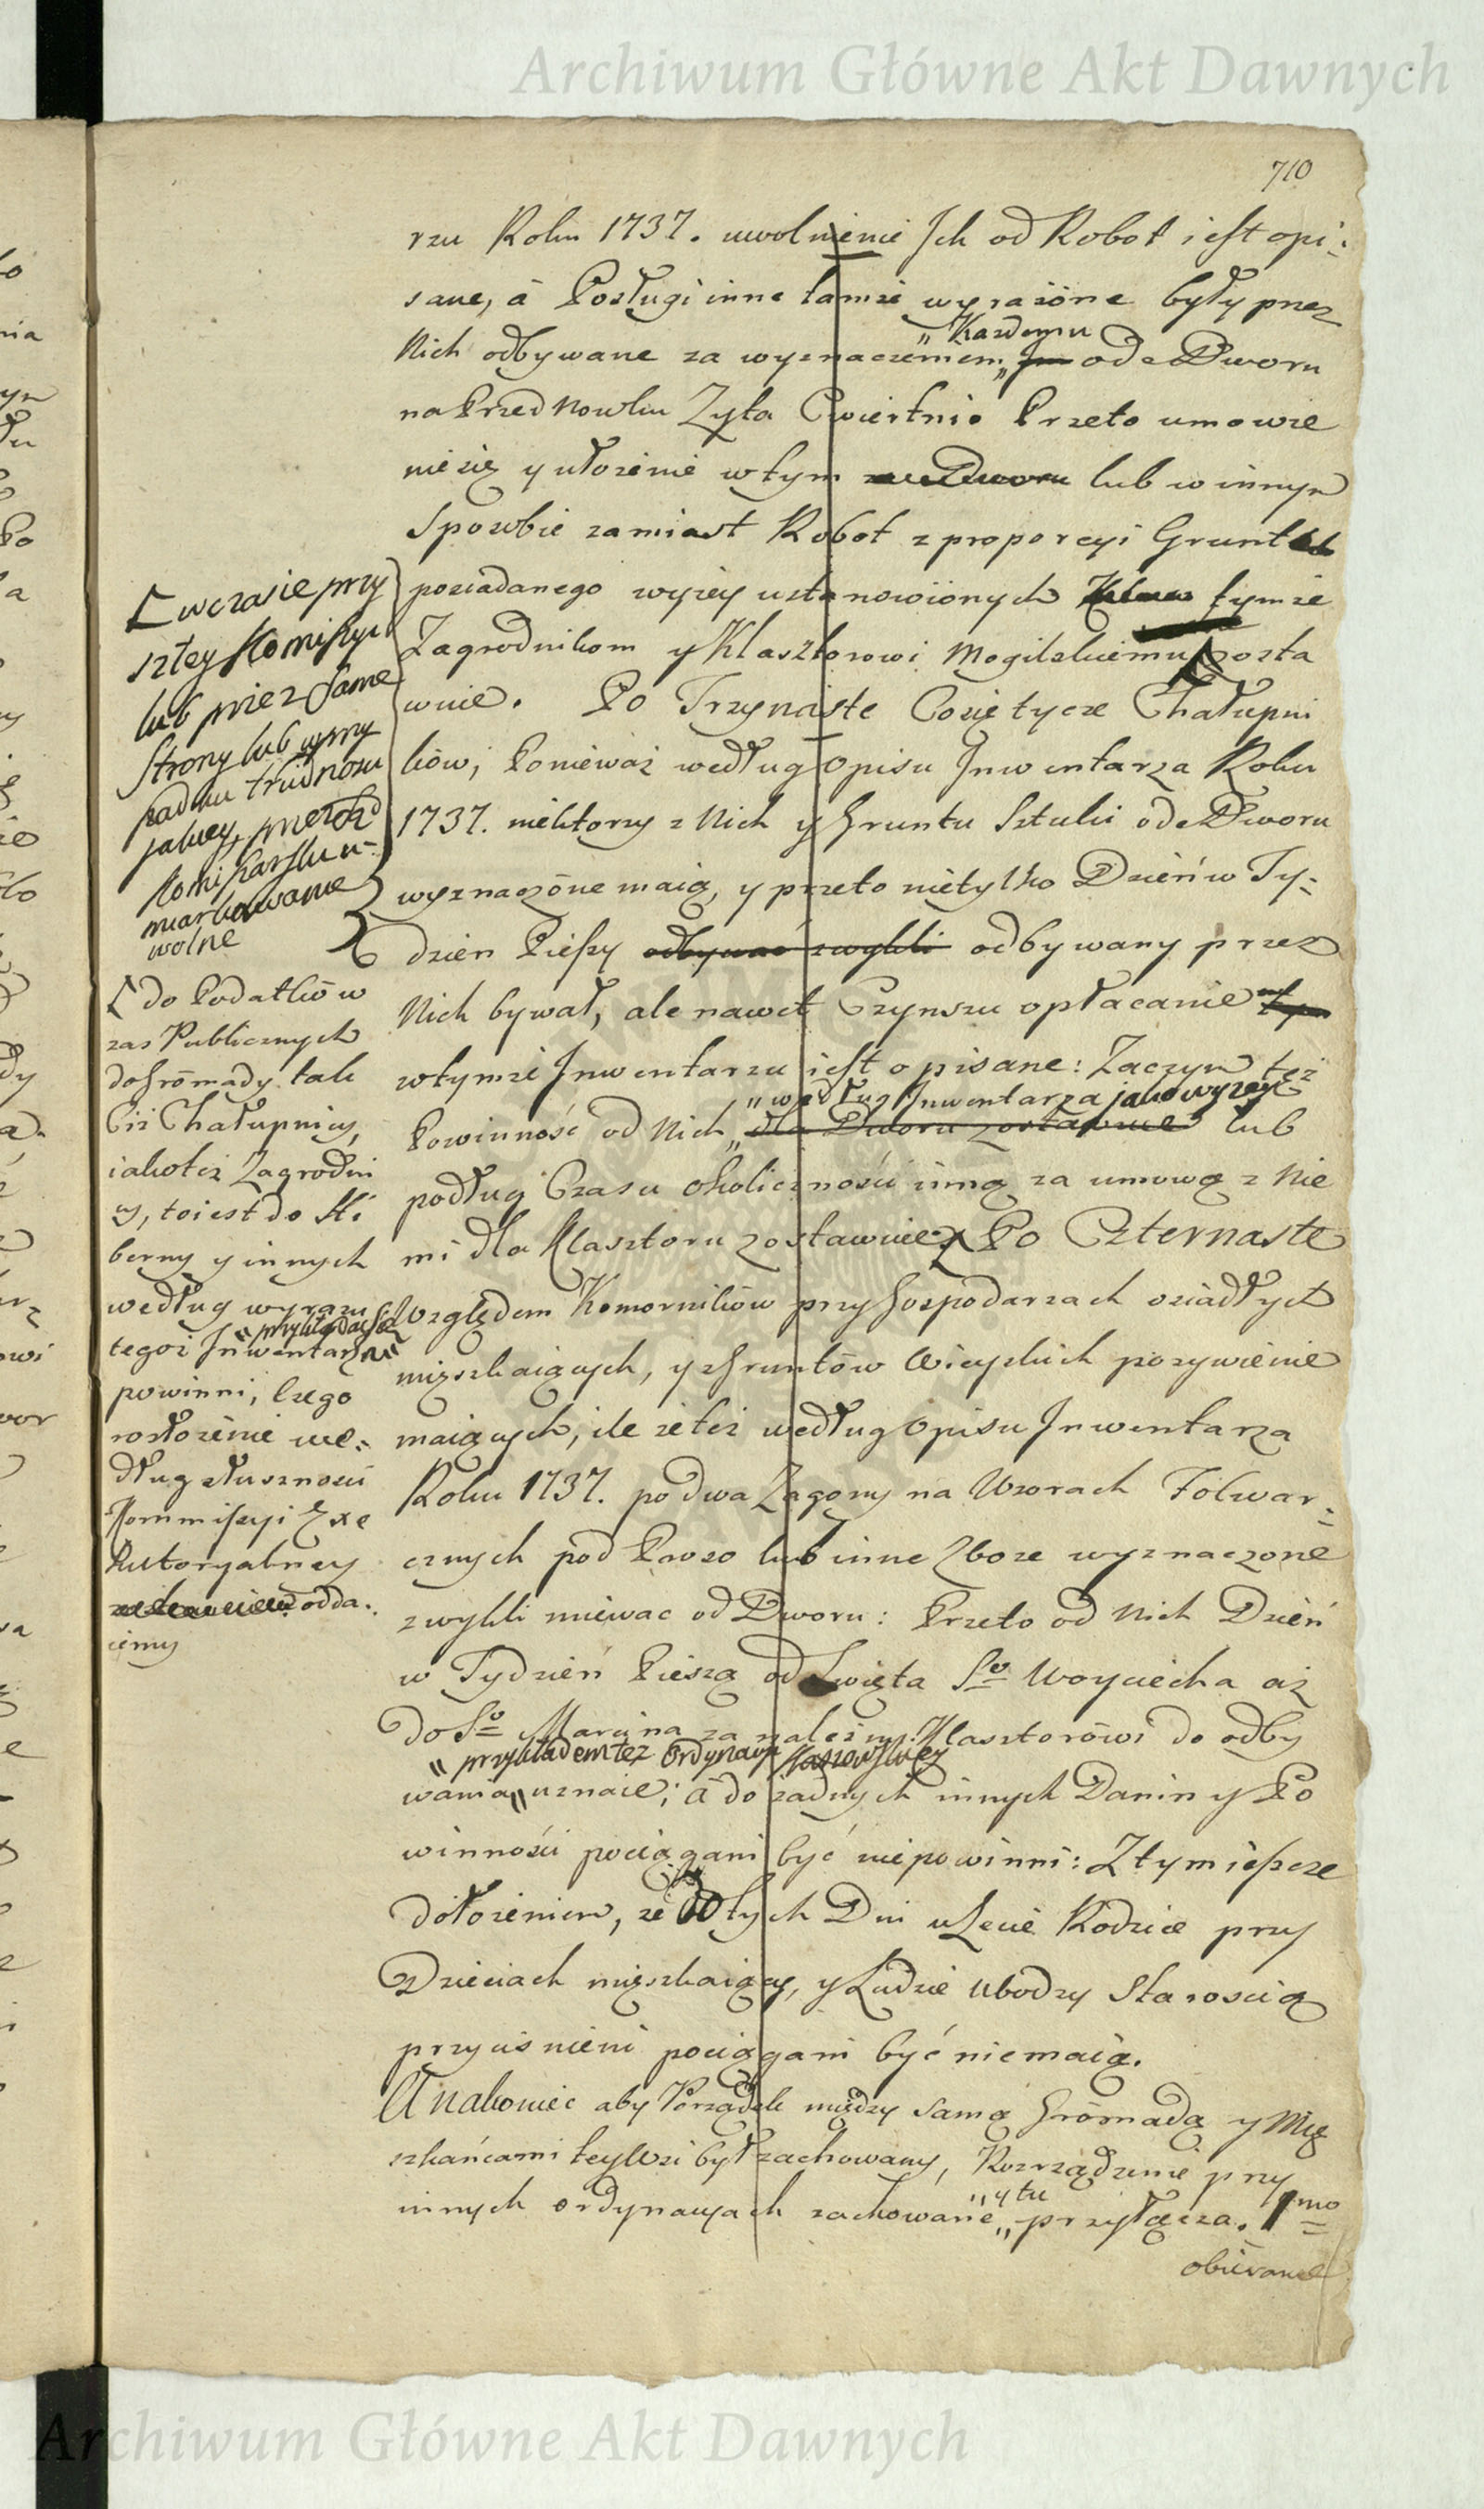 Archiwum Główne Akt Dawnych
710
rzu Roku 1737. uwolnienie Jch od Robot iest opi:
sane, á Posługi inne tamże wyrażóne były przez
„Kazdemu
Nich odbywane za wyznaczeniem „ ode Dworu
na Przednowku Zyta Cwiertni. Przeto umowie
nie się y ułożenie w tym ze Dworu lub w innym
Sposobie zamiast Robot z proporcyi Gruntu
posiadanego wyżey ustanowiónych tymże
Zagrodnikom y Klasztorowi Mogilskiemu zosta
wuie. Po Trzynaste Co się tycze Chałupni
ków, Ponieważ według Opisu Jnwentarza Roku
1737. niektorzy z Nich y Gruntu Sztuki ode Dworu
wyznaczóne maią, y przeto nietylko Dzień w Ty:
dzień Pieszy odbywać zwykli odbywany przez
Nich bywał, ale nawet Czynszu opłacanie tym
w tymże Jnwentarzu iest opisane: Zaczym też
„według Jnwentarza jako wyżey
Powinność od Nich „ dla Dworu zostawuie lub
podług Czasu okoliczności inną za umową z Nie
mi dla Klasztoru zostawuie. Po Czternaste
Względem Komorników przy Gospodarzach osiadłych
mięszkaiących, y z Gruntów Wieyskich pożywienie
maiących, ile że też według Opisu Jnwentarza
Roku 1737. po dwa Zagony na Uworach Folwar:
cznych pod Proso lub inne Zboże wyznaczone
zwykli miewac od Dworu: Przeto od Nich Dzień
w Tydzień Pieszą od Swięta Sgo Woyciecha aż
do Sgo Marcina za należny Klasztorówi do odby
„przykładem też Ordynacyi
wania „ uznaie; á do żadnych innych Danin y Po
winności pociągani być niepowinni: Z tym ieszcze
dołożeniem, że do tych Dni w Lecie Rodzice przy
Dzieciach mięszkaiący, y Ludzie Ubodzy Starością
przyciśnieni pociągani być niemaią.
A nakoniec aby Porządek między samą Grómadą y Mię
szkańcami tey Wsi był zachowany, Rozrządzenie przy
„y tu
innych ordynacyach zachowane „ przyłącza. 1mo
obieranie
[ w czasie przy
szłey Komissyi
lub przez same
Strony lub w przy
padku trudnosci
jakiey, przez
Komissarskie u-
miarkowanie
wolne
[ do Podatków
zas Publicznych
do Grómady tak
Ciż Chałupnicy,
iakoteż Zagrodni
cy, to iest do Hi
berny y innych
według wyrazu
„przykładać się
tegoż Jnwentarza „
powinni, Czego
rozłożenie we:
dług słuszności
Kommissyi Exe
kutoryalney
odda:
iemy
Archiwum Główne Akt Dawnych